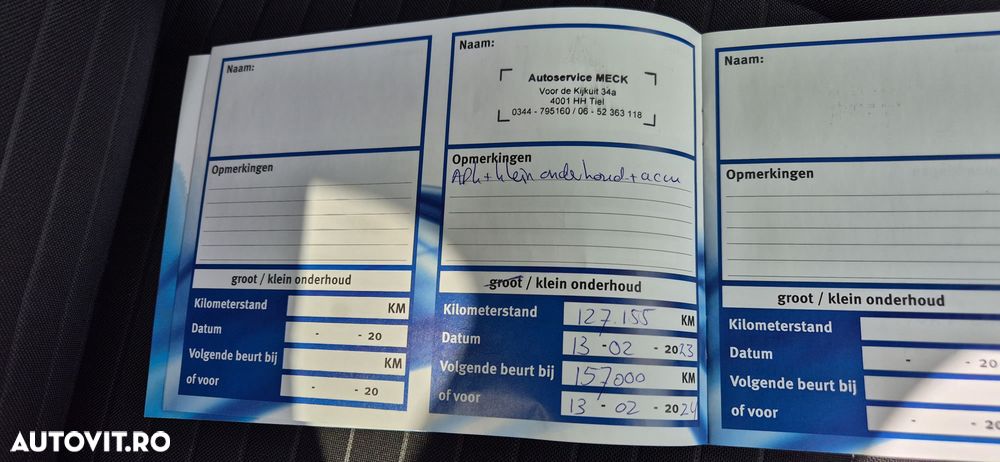 Naam:
Opmerkingen
groot / klein onderhoud
Kilometerstand KM
Datum - - 20
Volgende beurt bij KM
of voor - - 20
Naam:
Autoservice MECK
Voor de Kijkuit 34a
4001 HH Tiel
0344 - 795160 / 06 - 52 363 118
Opmerkingen
APK + klein onderhoud + accu
groot / klein onderhoud
Kilometerstand 127 155 KM
Datum 13 - 02 - 2023
Volgende beurt bij 157000 KM
of voor 13 - 02 - 2024
Naam:
Opmerkingen
groot / klein onderhoud
Kilometerstand
Datum - - 20
Volgende beurt bij
of voor - - 20
AUTOVIT.RO